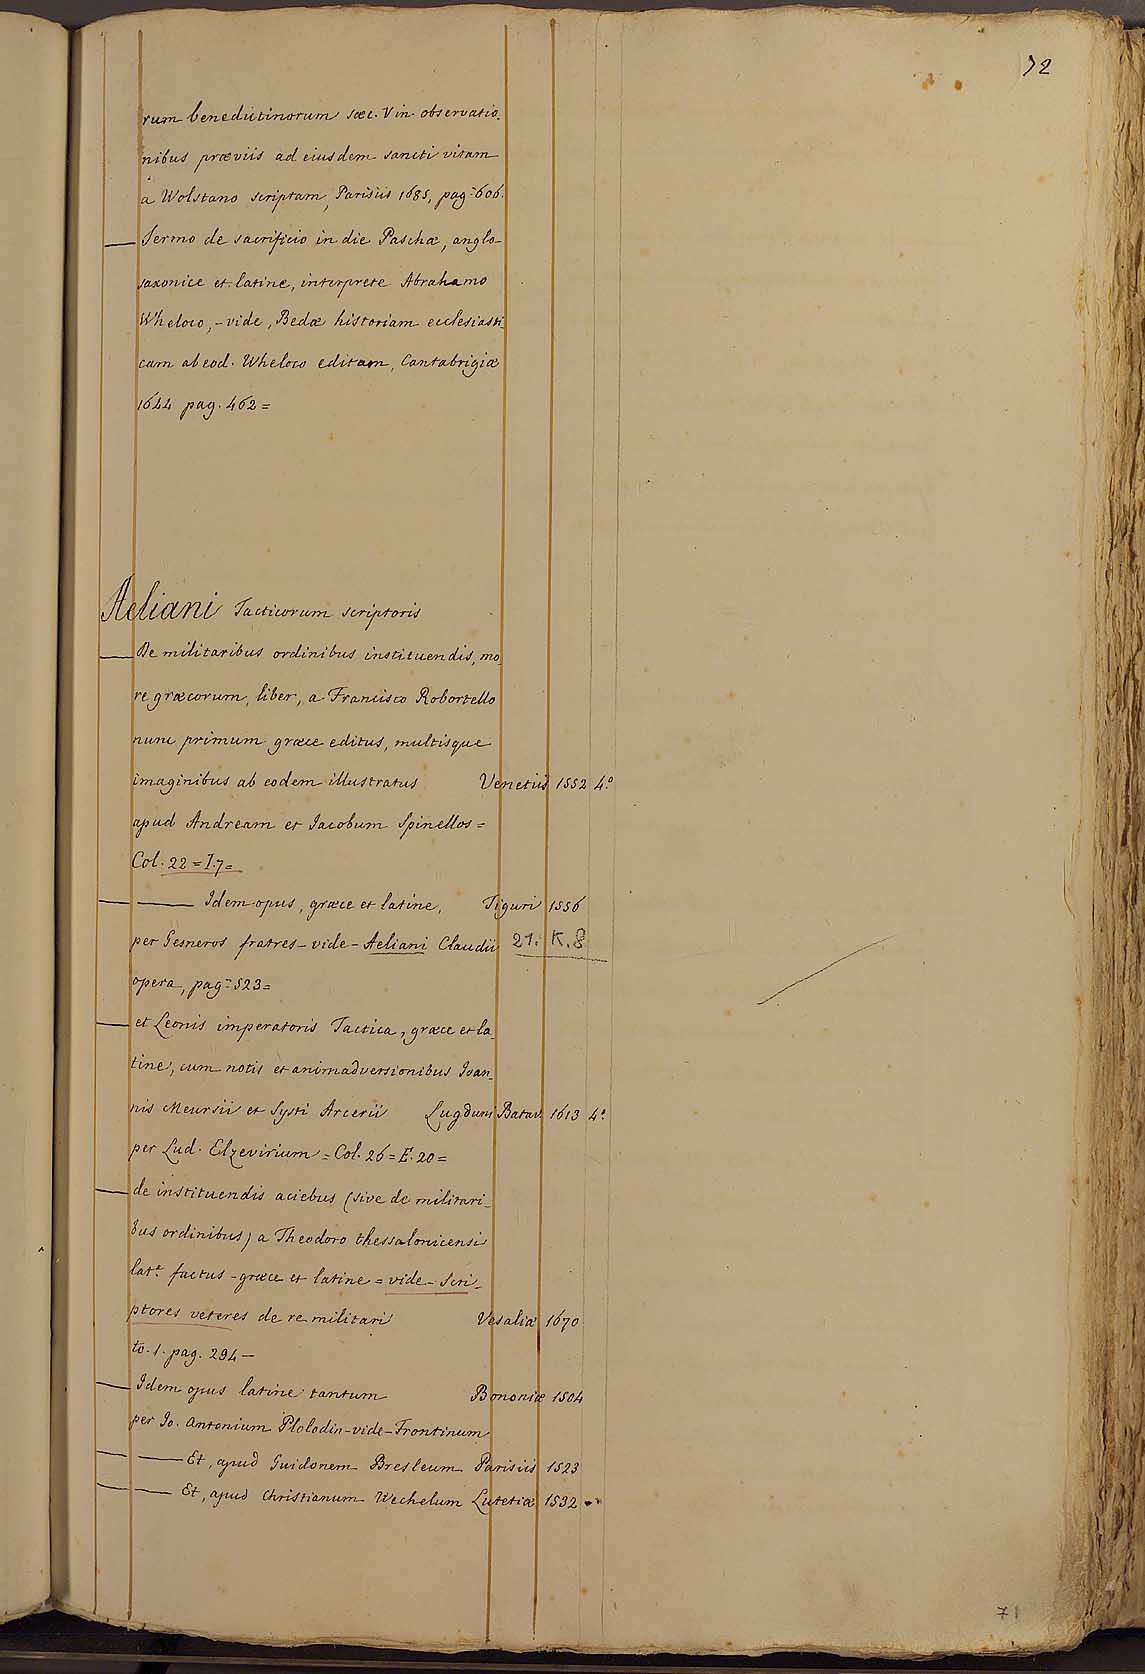 72
rum benedictinorum sæc. V in observatio-
nibus præviis ad eiusdem sancti vitam
a Wolstano scriptam, Parisiis 1685, pag. 606.
— Sermo de sacrificio in die Paschæ, anglo-
saxonice et latine, interprete Abrahamo
Wheloco, - vide, Bedæ historiam ecclesiasti-
cam ab eod. Wheloco editam, Cantabrigiæ
1644 pag. 462 =
Aeliani Tacticorum scriptoris
— De militaribus ordinibus instituendis, mo-
re græcorum, liber, a Francisco Robortello
nunc primum græce editus, multisque
imaginibus ab eodem illustratus Venetiis 1552 4.º
apud Andream et Iacobum Spinellos =
Col. 22 = I. 7 =
— — Idem opus, græce et latine, Tiguri 1556
per Gesneros fratres - vide - Aeliani Claudii 21. K. 8
opera, pag. 523 =
— et Leonis imperatoris Tactica, græce et la-
tine, cum notis et animadversionibus Ioan-
nis Meursii et Systi Arcerii Lugduni Batav. 1613 4.º
per Lud. Elzevirium = Col. 26 = E. 20 =
— de instituendis aciebus (sive de militari-
bus ordinibus) a Theodoro thessalonicensi
lat.e factus - græce et latine = vide - Scri-
ptores veteres de re militari Vesaliæ 1670
to. 1. pag. 294 —
— Idem opus latine tantum Bononiæ 1504
per Io. Antonium Plolodin - vide - Frontinum
— — Et, apud Guidonem Bresleum Parisiis 1523
— — Et, apud Christianum Wechelum Lutetiæ 1532
71